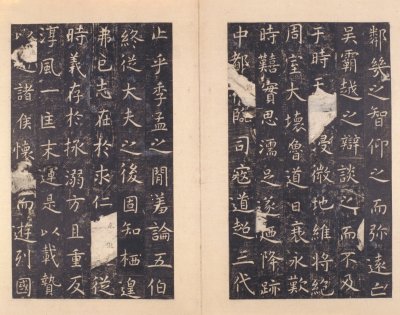 鄰幾之智仰之而弥遠亡
吳霸越之辯談之而不及
于時天浸微地維將絕
周室大壞魯道日衰永歎
時囏實思濡足遂迺降跡
中都臨司寇道超三代
止乎季孟之閒羞論五伯
終從大夫之後固知栖遑
弗已志在於求仁從
時義存於拯溺方且重反
淳風一匡末運是以載贄
以諸侯懷而遊列國